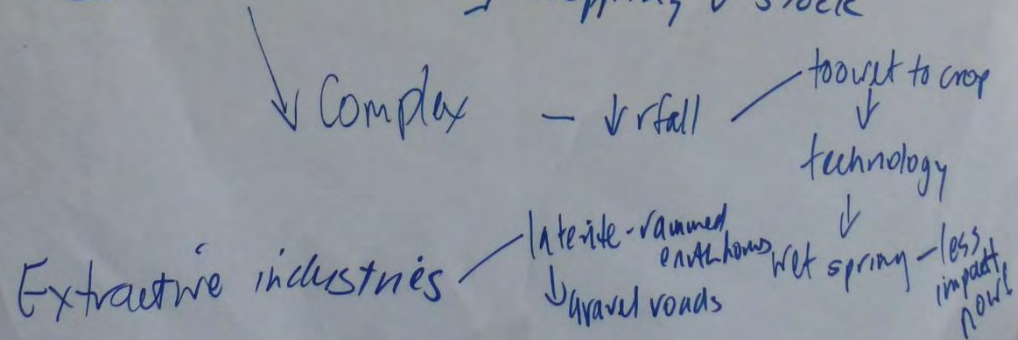 ↓ stock
↓ Complex – ↓ rfall – too wet to crop
↓
technology
↓
wet spring – less impact now!
Extractive industries – laterite - rammed earth homes
↓ gravel roads